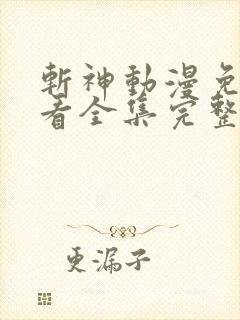 斬神動漫免
看全集完整
更漏子